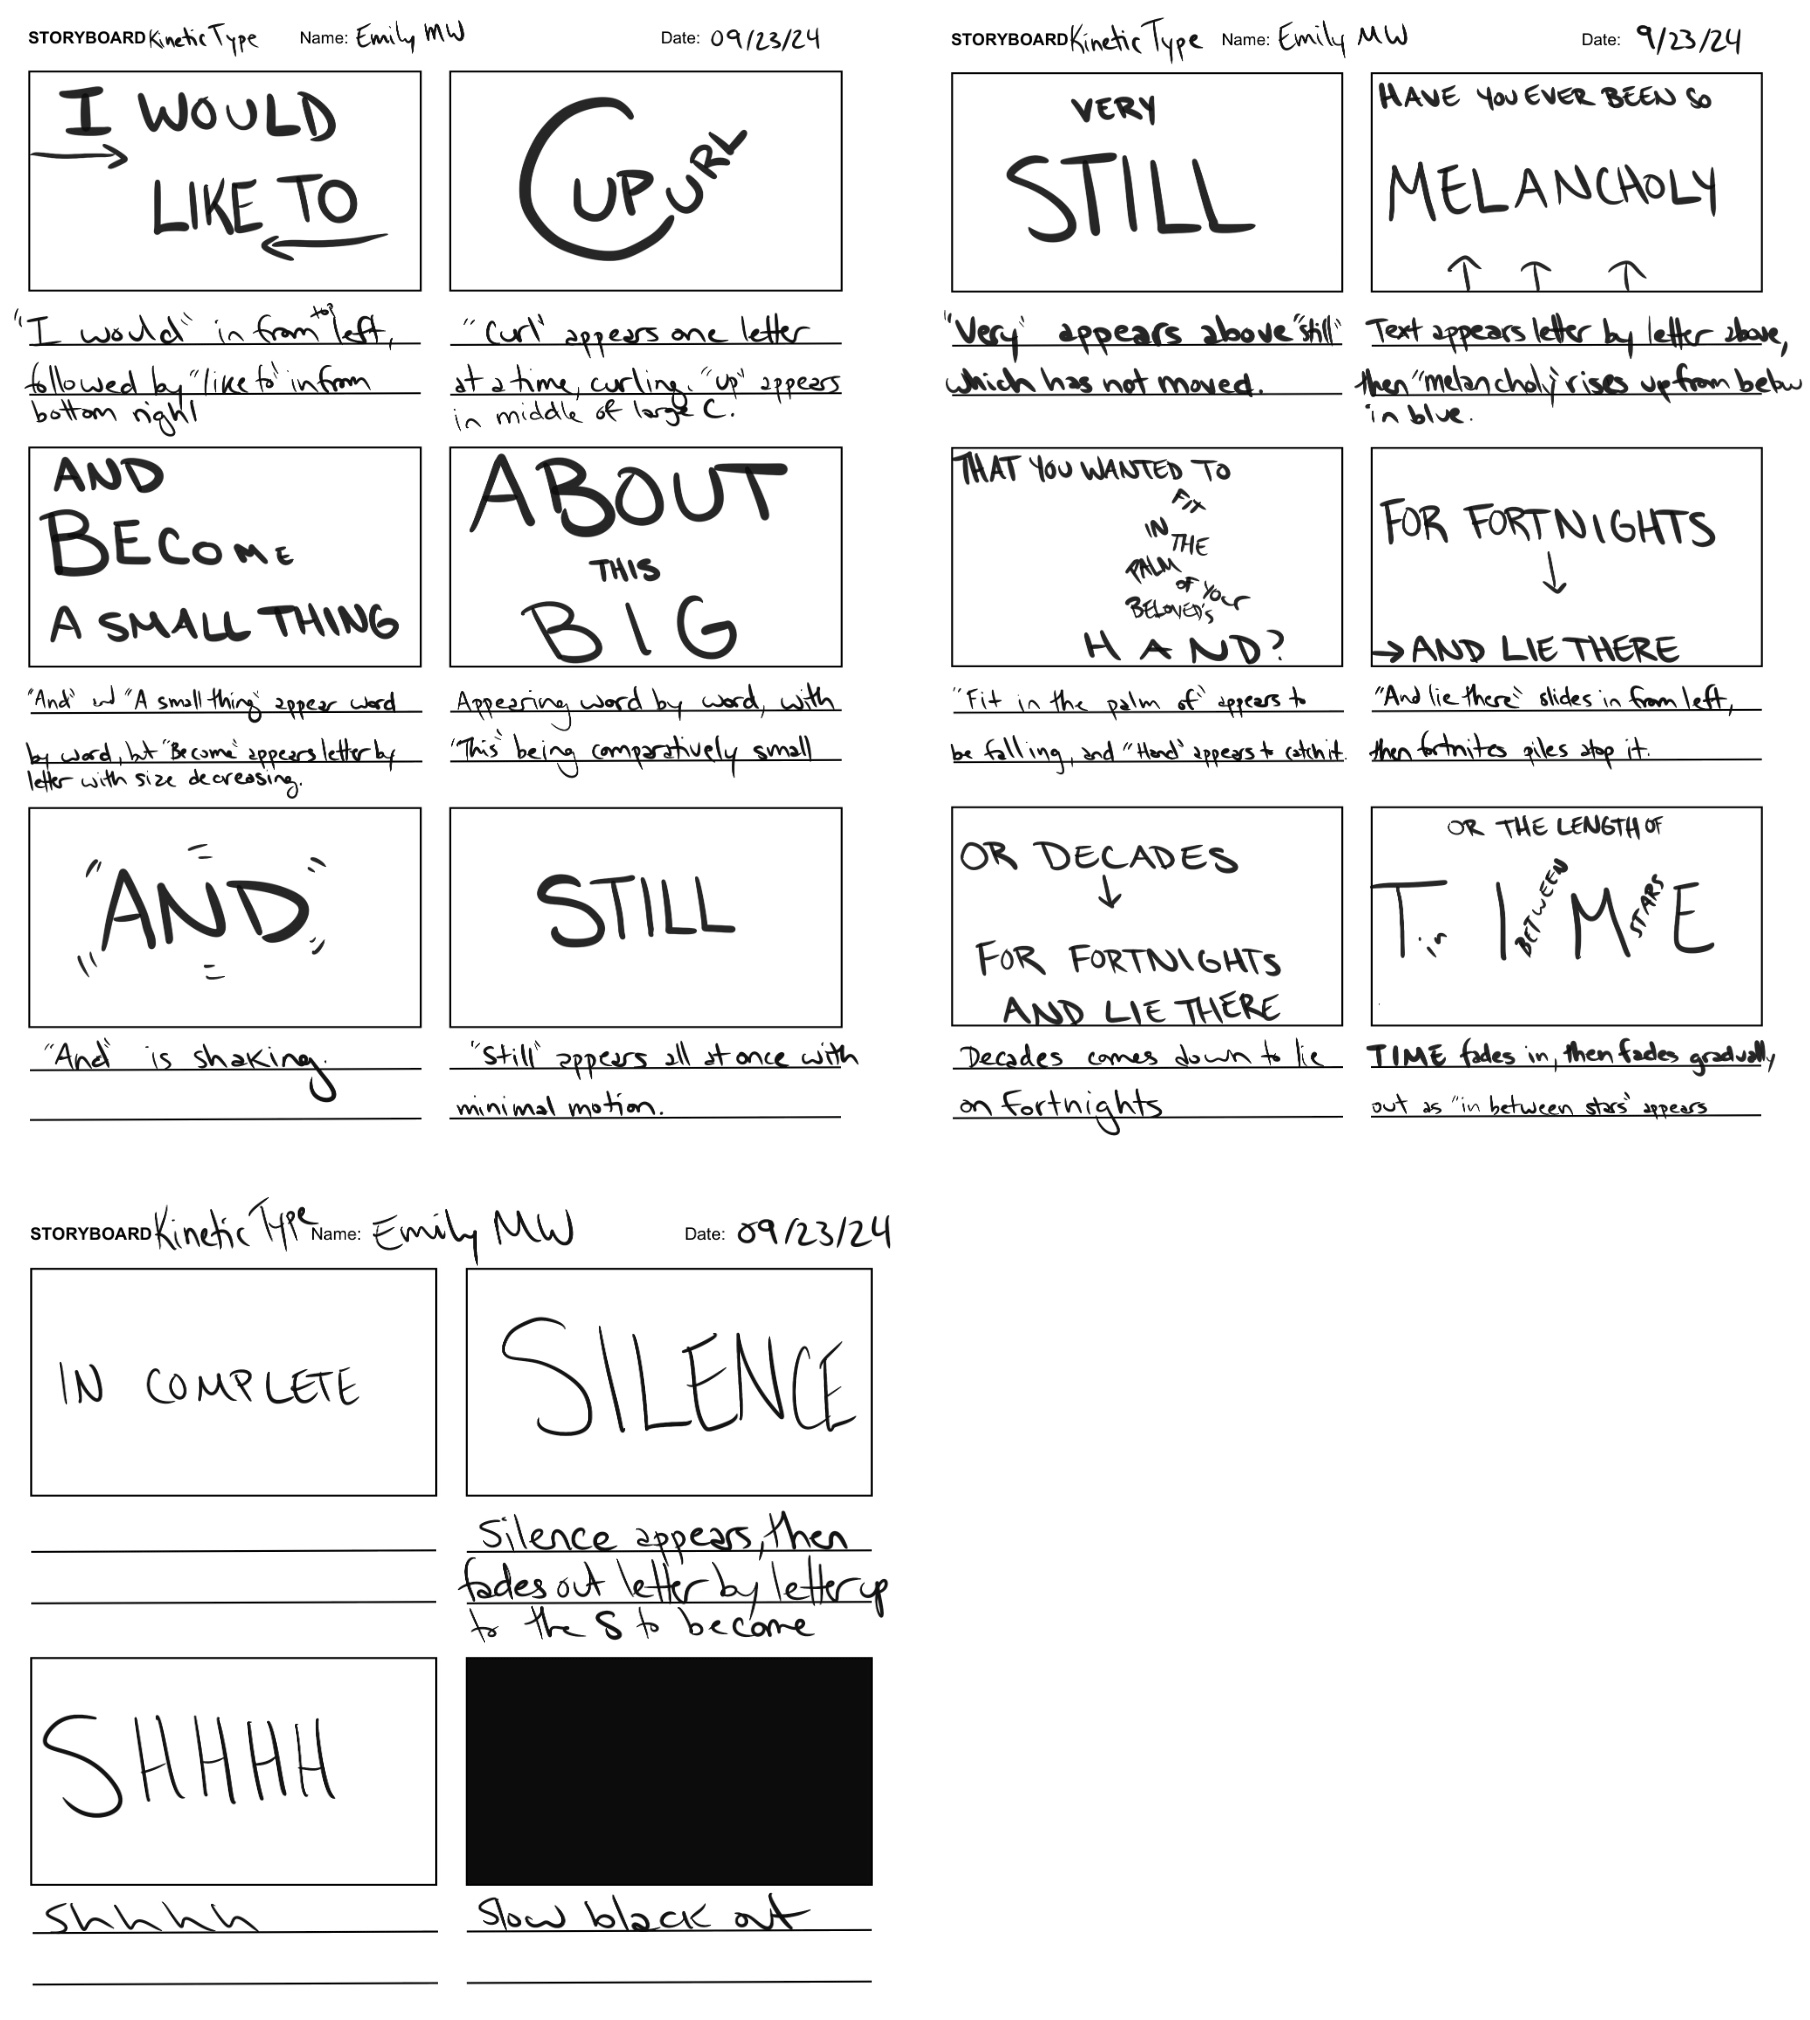 STORYBOARD Kinetic Type Name: Emily MW Date: 09/23/24
I WOULD
LIKE TO
"I would" in from top left,
followed by "like to" in from
bottom right
CURL
UP
"Curl" appears one letter
at a time, curling. "up" appears
in middle of large C.
AND
BECOME
A SMALL THING
"And" and "A small thing" appear word
by word, but "Become" appears letter by
letter with size decreasing.
ABOUT
THIS
BIG
Appearing word by word, with
"This" being comparatively small
AND
"And" is shaking.
STILL
"Still" appears all at once with
minimal motion.
STORYBOARD Kinetic Type Name: Emily MW Date: 9/23/24
VERY
STILL
"Very" appears above "still"
which has not moved.
HAVE YOU EVER BEEN SO
MELANCHOLY
Text appears letter by letter above,
then "melancholy" rises up from below
in blue.
THAT YOU WANTED TO
FIT
IN
THE
PALM
OF YOUR
BELOVED'S
HAND?
"Fit in the palm of" appears to
be falling, and "Hand" appears to catch it.
FOR FORTNIGHTS
AND LIE THERE
"And lie there" slides in from left,
then fortnites piles atop it.
OR DECADES
FOR FORTNIGHTS
AND LIE THERE
Decades comes down to lie
on fortnights
OR THE LENGTH OF
TIME
in BETWEEN STARS
TIME fades in, then fades gradually
out as "in between stars" appears
STORYBOARD Kinetic Type Name: Emily MW Date: 09/23/24
IN COMPLETE
SILENCE
Silence appears, then
fades out letter by letter up
to the S to become
SHHHH
Shhhh
Slow black out